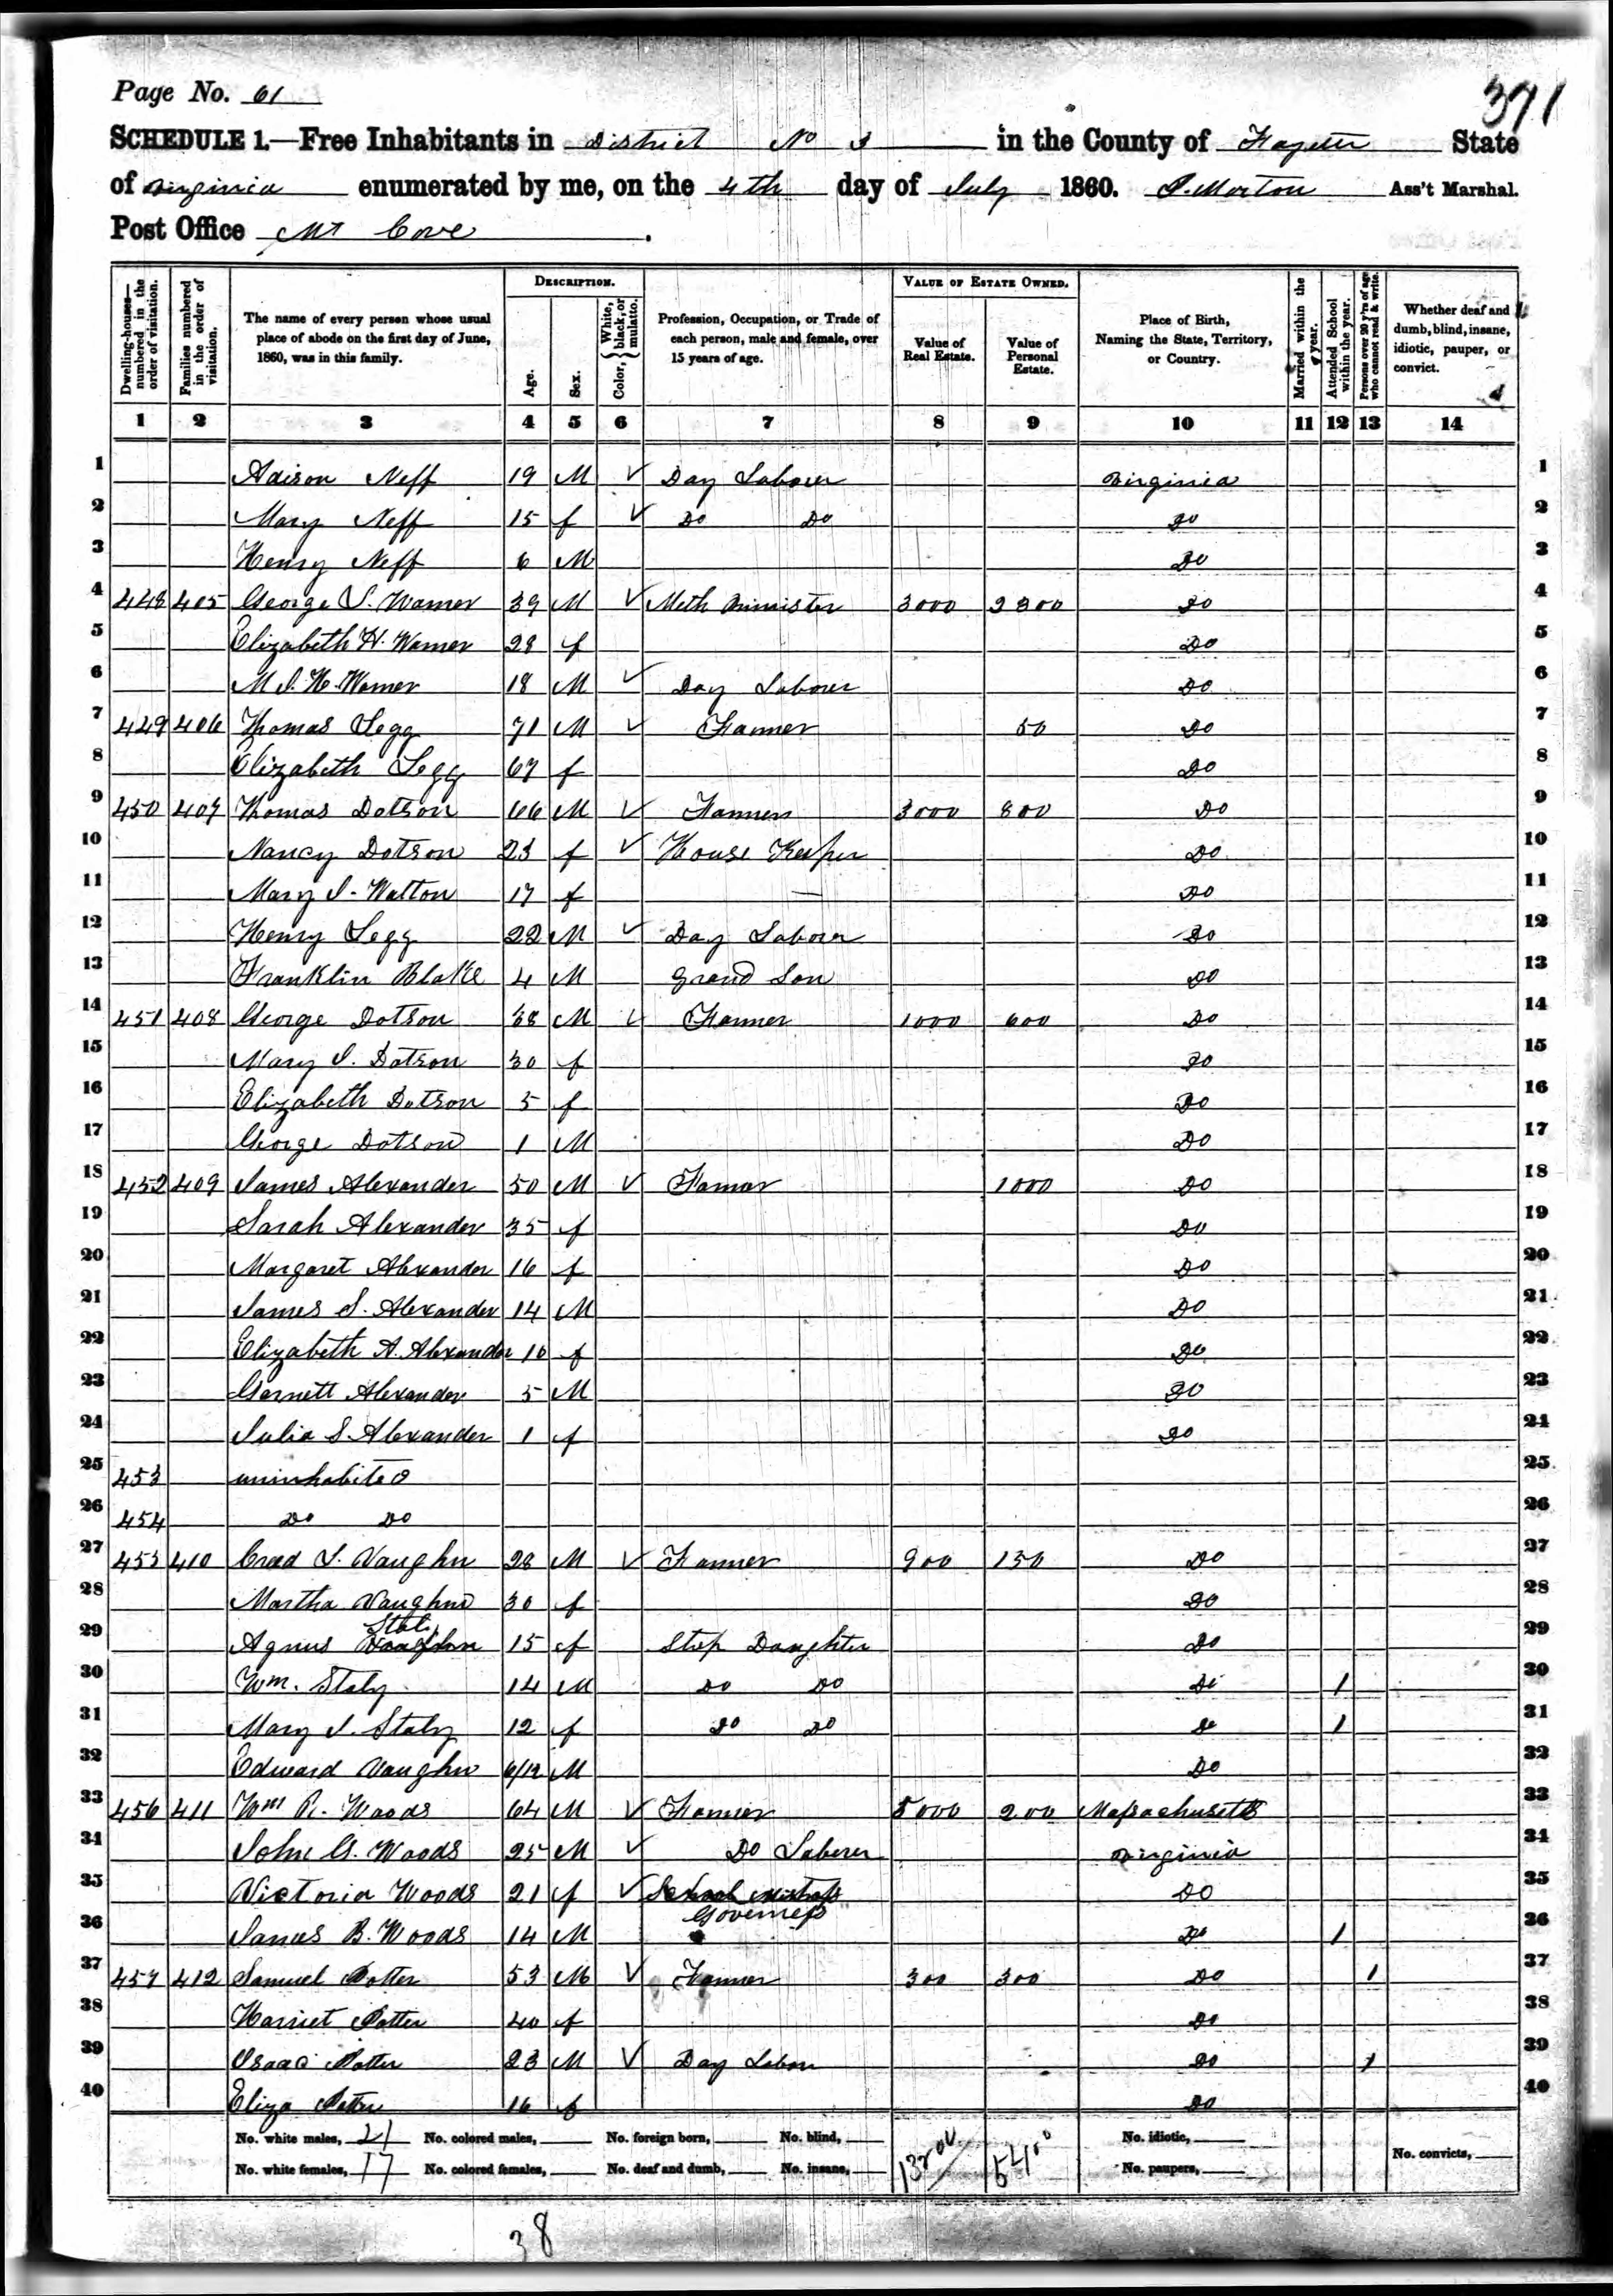 Page No. 61
371
SCHEDULE 1.—Free Inhabitants in District No 3 in the County of Fayette State
of Virginia enumerated by me, on the 4th day of July 1860. Morton Ass't Marshal.
Post Office Mt Cove.
Dwelling-houses—numbered in the order of visitation. Families numbered in the order of visitation. The name of every person whose usual place of abode on the first day of June, 1860, was in this family. DESCRIPTION. Age. Sex. Color, White, black, or mulatto. Profession, Occupation, or Trade of each person, male and female, over 15 years of age. VALUE OF ESTATE OWNED. Value of Real Estate. Value of Personal Estate. Place of Birth, Naming the State, Territory, or Country. Married within the year. Attended School within the year. Persons over 20 y'rs of age who cannot read & write. Whether deaf and dumb, blind, insane, idiotic, pauper, or convict.
1 2 3 4 5 6 7 8 9 10 11 12 13 14
1 Adison Neff 19 M ✓ Day Laborer Virginia 1
2 Mary Neff 15 f ✓ Do Do Do 2
3 Henry Neff 6 M Do 3
4 448 405 George Warner 39 M ✓ Meth Minister 3000 2300 Do 4
5 Elizabeth H. Warner 28 f Do 5
6 Warner 18 M ✓ Day Laborer Do 6
7 449 406 Thomas Legg 71 M ✓ Farmer 50 Do 7
8 Elizabeth Legg 67 f Do 8
9 450 407 Thomas Dotson 66 M ✓ Farmer 3000 800 Do 9
10 Nancy Dotson 23 f ✓ House Keeper Do 10
11 Mary J. Walton 17 f — Do 11
12 Henry Legg 22 M ✓ Day Laborer Do 12
13 Franklin Blake 4 M Grand Son Do 13
14 451 408 George Dotson 38 M ✓ Farmer 1000 600 Do 14
15 Mary J. Dotson 30 f Do 15
16 Elizabeth Dotson 5 f Do 16
17 George Dotson 1 M Do 17
18 452 409 James Alexander 50 M ✓ Farmer 1000 Do 18
19 Sarah Alexander 35 f Do 19
20 Margaret Alexander 16 f Do 20
21 James S. Alexander 14 M Do 21
22 Elizabeth A. Alexander 10 f Do 22
23 Garnett Alexander 5 M Do 23
24 Julia S. Alexander 1 f Do 24
25 453 uninhabited 25
26 454 Do Do 26
27 455 410 Vaughn 28 M ✓ Farmer 900 150 Do 27
28 Martha Vaughn 30 f Do 28
29 Agnus Vaughn 15 f Step Daughter Do 29
30 Wm. Staly 14 M Do Do Do 1 30
31 Mary J. Staly 12 f Do Do Do 1 31
32 Edward Vaughn 6/12 M Do 32
33 456 411 Wm R. Woods 64 M ✓ Farmer 5000 200 Massachusetts 33
34 John G. Woods 25 M ✓ Do Laborer Virginia 34
35 Victoria Woods 21 f ✓ School Mistress Do 35
Governess
36 James B. Woods 14 M Do 1 36
37 457 412 Samuel Potter 53 M ✓ Farmer 300 300 Do 1 37
38 Harriet Potter 40 f Do 38
39 Isaac Potter 23 M ✓ Day Labor Do 1 39
40 Eliza Potter 16 f Do 40
No. white males, 21 No. colored males, No. foreign born, No. blind, 13200 5400 No. idiotic,
No. white females, 17 No. colored females, No. deaf and dumb, No. insane, No. paupers, No. convicts,
38